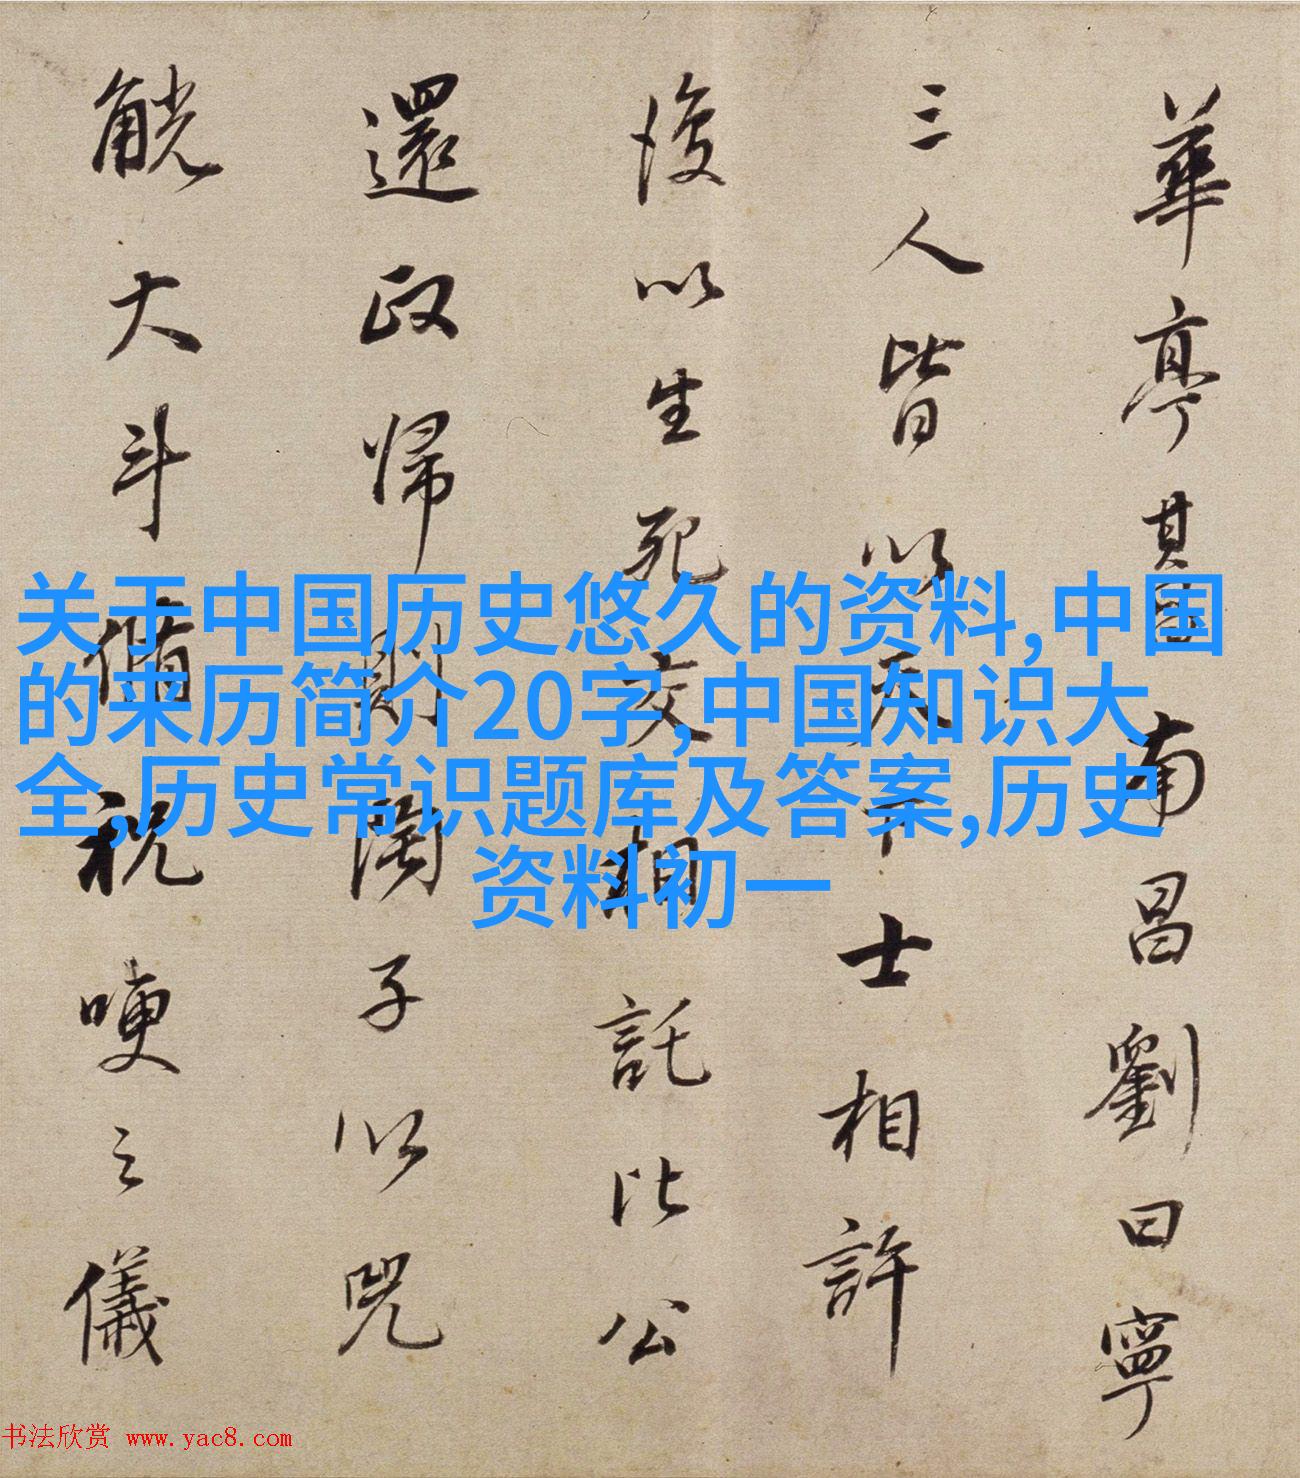 華亭其昌南昌劉曰寧
三人皆以天下士相許
後以生死交相託比公
還政歸則陶子以兕
觥大斗脩祝哽之儀
关于中国历史悠久的资料,中国
的来历简介20字,中国知识大
全,历史常识题库及答案,历史
资料初一
书法欣赏 www.yac8.com